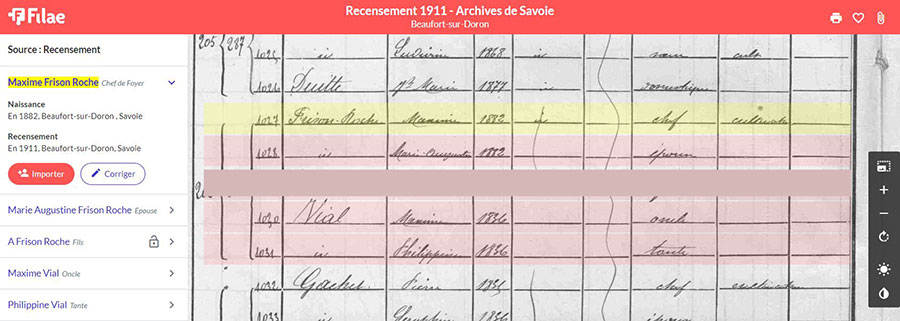 Filae
Recensement 1911 - Archives de Savoie
Beaufort-sur-Doron
Source : Recensement
Maxime Frison Roche Chef de Foyer
Naissance
En 1882, Beaufort-sur-Doron , Savoie
Recensement
En 1911, Beaufort-sur-Doron, Savoie
Importer
Corriger
Marie Augustine Frison Roche Epouse
A Frison Roche Fils
Maxime Vial Oncle
Philippine Vial Tante
205 287 1025 id 1868 id
1026 1877 domestique
1027 Frison-Roche Maxime 1882 id chef cultivateur
1028 id Marie-Augustine 1882 épouse
1030 Vial Maxime 1836 oncle
1031 id Philippine 1836 tante
1032 Gachet chef
1033 1836